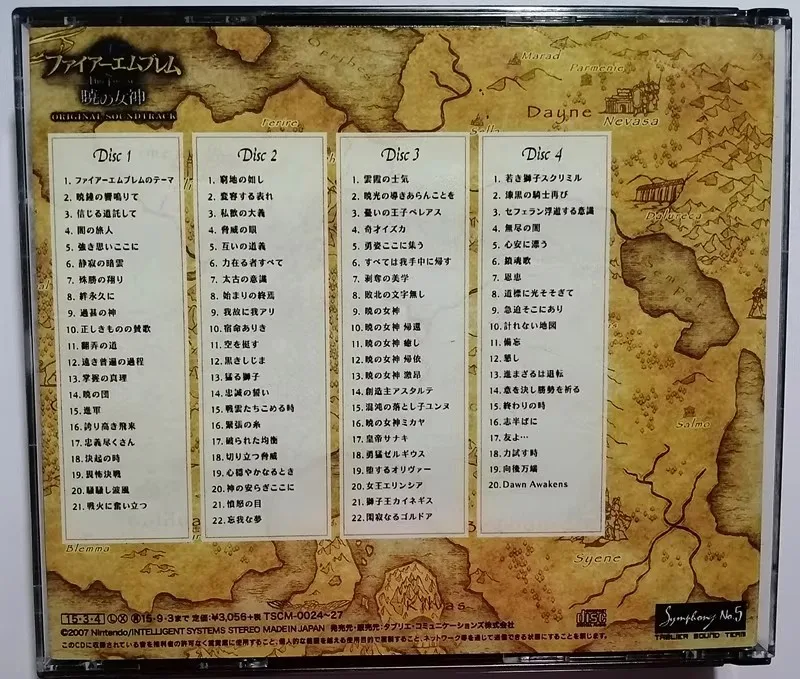 ファイアーエムブレム
暁の女神
ORIGINAL SOUNDTRACK
Marad
Parmenie
Dayne
Nevasa
Terire
Disc 1
1. ファイアーエムブレムのテーマ
2. 暁鐘の響鳴りて
3. 信じる道託して
4. 闇の旅人
5. 強き思いここに
6. 静寂の暗雲
7. 殊勝の翔り
8. 絆永久に
9. 過甚の神
10. 正しきものの賛歌
11. 翻弄の道
12. 遠き普遍の過程
13. 掌握の真理
14. 暁の団
15. 進軍
16. 誇り高き飛来
17. 忠義尽くさん
18. 決起の時
19. 畏怖決戦
20. 騒騒し波風
21. 戦火に奮い立つ
Disc 2
1. 窮地の如し
2. 変容する表れ
3. 私欲の大義
4. 脅威の眼
5. 互いの道義
6. 力在る者すべて
7. 太古の意識
8. 始まりの終焉
9. 我故に我アリ
10. 宿命ありき
11. 空を挺す
12. 黒きしじま
13. 猛る獅子
14. 忠誠の誓い
15. 戦雲たちこめる時
16. 緊張の糸
17. 破られた均衡
18. 切り立つ脅威
19. 心穏やかなるとき
20. 神の安らぎここに
21. 憤怒の目
22. 忘我な夢
Disc 3
1. 雲霞の士気
2. 暁光の導きあらんことを
3. 憂いの王子ペレアス
4. 奇才イズカ
5. 勇姿ここに集う
6. すべては我手中に帰す
7. 剥奪の美学
8. 敗北の文字無し
9. 暁の女神
10. 暁の女神 帰還
11. 暁の女神 癒し
12. 暁の女神 帰依
13. 暁の女神 激昂
14. 創造主アスタルテ
15. 混沌の落とし子ユンヌ
16. 暁の女神ミカヤ
17. 皇帝サナキ
18. 勇猛ゼルギウス
19. 堕するオリヴァー
20. 女王エリンシア
21. 獅子王カイネギス
22. 閑寂なるゴルドア
Disc 4
1. 若き獅子スクリミル
2. 漆黒の騎士再び
3. セフェラン浮遊する意識
4. 無尽の闇
5. 心安に漂う
6. 鎮魂歌
7. 恩恵
8. 道標に光そそぎて
9. 急迫そこにあり
10. 計れない地図
11. 備忘
12. 慰し
13. 進まざるは退転
14. 意を決し勝勢を祈る
15. 終わりの時
16. 志半ばに
17. 友よ…
18. 力試す時
19. 向後万端
20. Dawn Awakens
Salmo
Blemma
Syene
15・3・4 Ⓛ Ⓧ 再15・9・3まで 定価:¥3,056+税 TSCM-0024~27
©2007 Nintendo/INTELLIGENT SYSTEMS STEREO MADE IN JAPAN 発売元・販売元:タブリエ・コミュニケーションズ株式会社
Symphony No.5
TABLIER SOUND TEAM